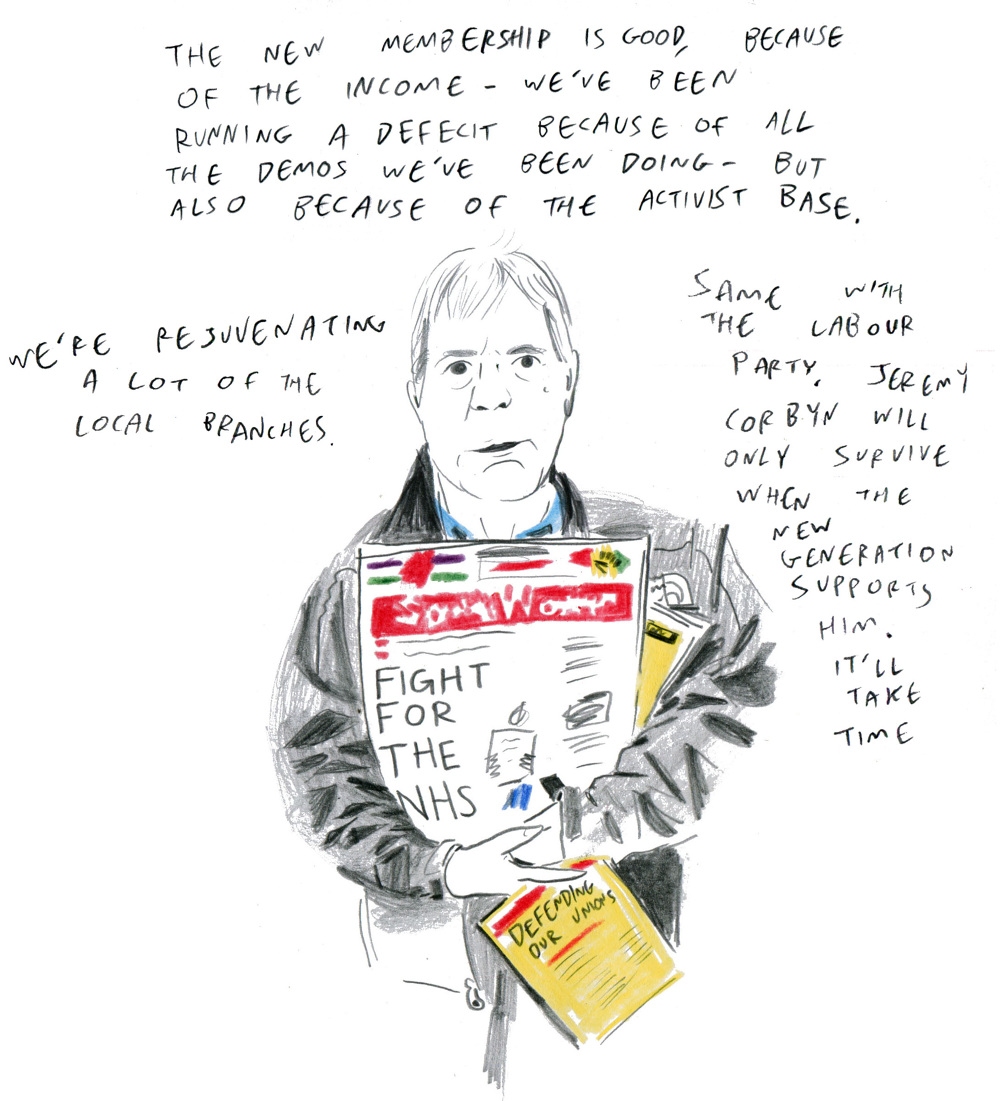 THE NEW MEMBERSHIP IS GOOD, BECAUSE
OF THE INCOME - WE'VE BEEN
RUNNING A DEFECIT BECAUSE OF ALL
THE DEMOS WE'VE BEEN DOING - BUT
ALSO BECAUSE OF THE ACTIVIST BASE.
WE'RE REJUVENATING
A LOT OF THE
LOCAL BRANCHES.
SAME WITH
THE LABOUR
PARTY. JEREMY
CORBYN WILL
ONLY SURVIVE
WHEN THE
NEW
GENERATION
SUPPORTS
HIM.
IT'LL
TAKE
TIME
FIGHT
FOR
THE
NHS
DEFENDING
OUR UNIONS